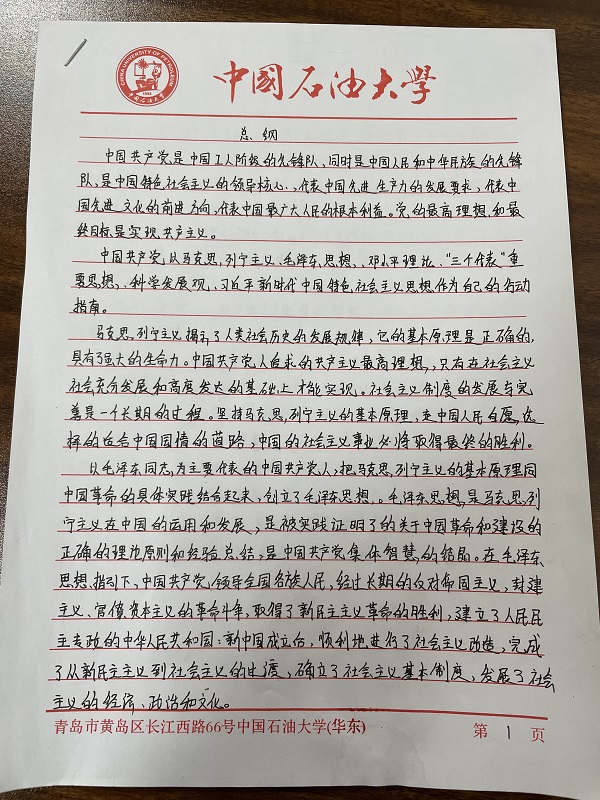 CHINA UNIVERSITY OF PETROLEUM
1953
中国石油大学
中國石油大學
总纲
中国共产党是中国工人阶级的先锋队,同时是中国人民和中华民族的先锋
队,是中国特色社会主义的领导核心,代表中国先进生产力的发展要求,代表中
国先进文化的前进方向,代表中国最广大人民的根本利益。党的最高理想和最
终目标是实现共产主义。
中国共产党以马克思列宁主义、毛泽东思想、邓小平理论、“三个代表”重
要思想、科学发展观、习近平新时代中国特色社会主义思想作为自己的行动
指南。
马克思列宁主义揭示了人类社会历史的发展规律,它的基本原理是正确的,
具有强大的生命力。中国共产党人追求的共产主义最高理想,只有在社会主义
社会充分发展和高度发达的基础上才能实现。社会主义制度的发展与完
善是一个长期的过程。坚持马克思列宁主义的基本原理,走中国人民自愿选
择的适合中国国情的道路,中国的社会主义事业必将取得最终的胜利。
以毛泽东同志为主要代表的中国共产党人,把马克思列宁主义的基本原理同
中国革命的具体实践结合起来,创立了毛泽东思想。毛泽东思想是马克思列
宁主义在中国的运用和发展,是被实践证明了的关于中国革命和建设的
正确的理论原则和经验总结,是中国共产党集体智慧的结晶。在毛泽东
思想指引下,中国共产党领导全国各族人民,经过长期的反对帝国主义、封建
主义、官僚资本主义的革命斗争,取得了新民主主义革命的胜利,建立了人民民
主专政的中华人民共和国;新中国成立后,顺利地进行了社会主义改造,完成
了从新民主主义到社会主义的过渡,确立了社会主义基本制度,发展了社会
主义的经济、政治和文化。
青岛市黄岛区长江西路66号中国石油大学(华东)
第 1 页